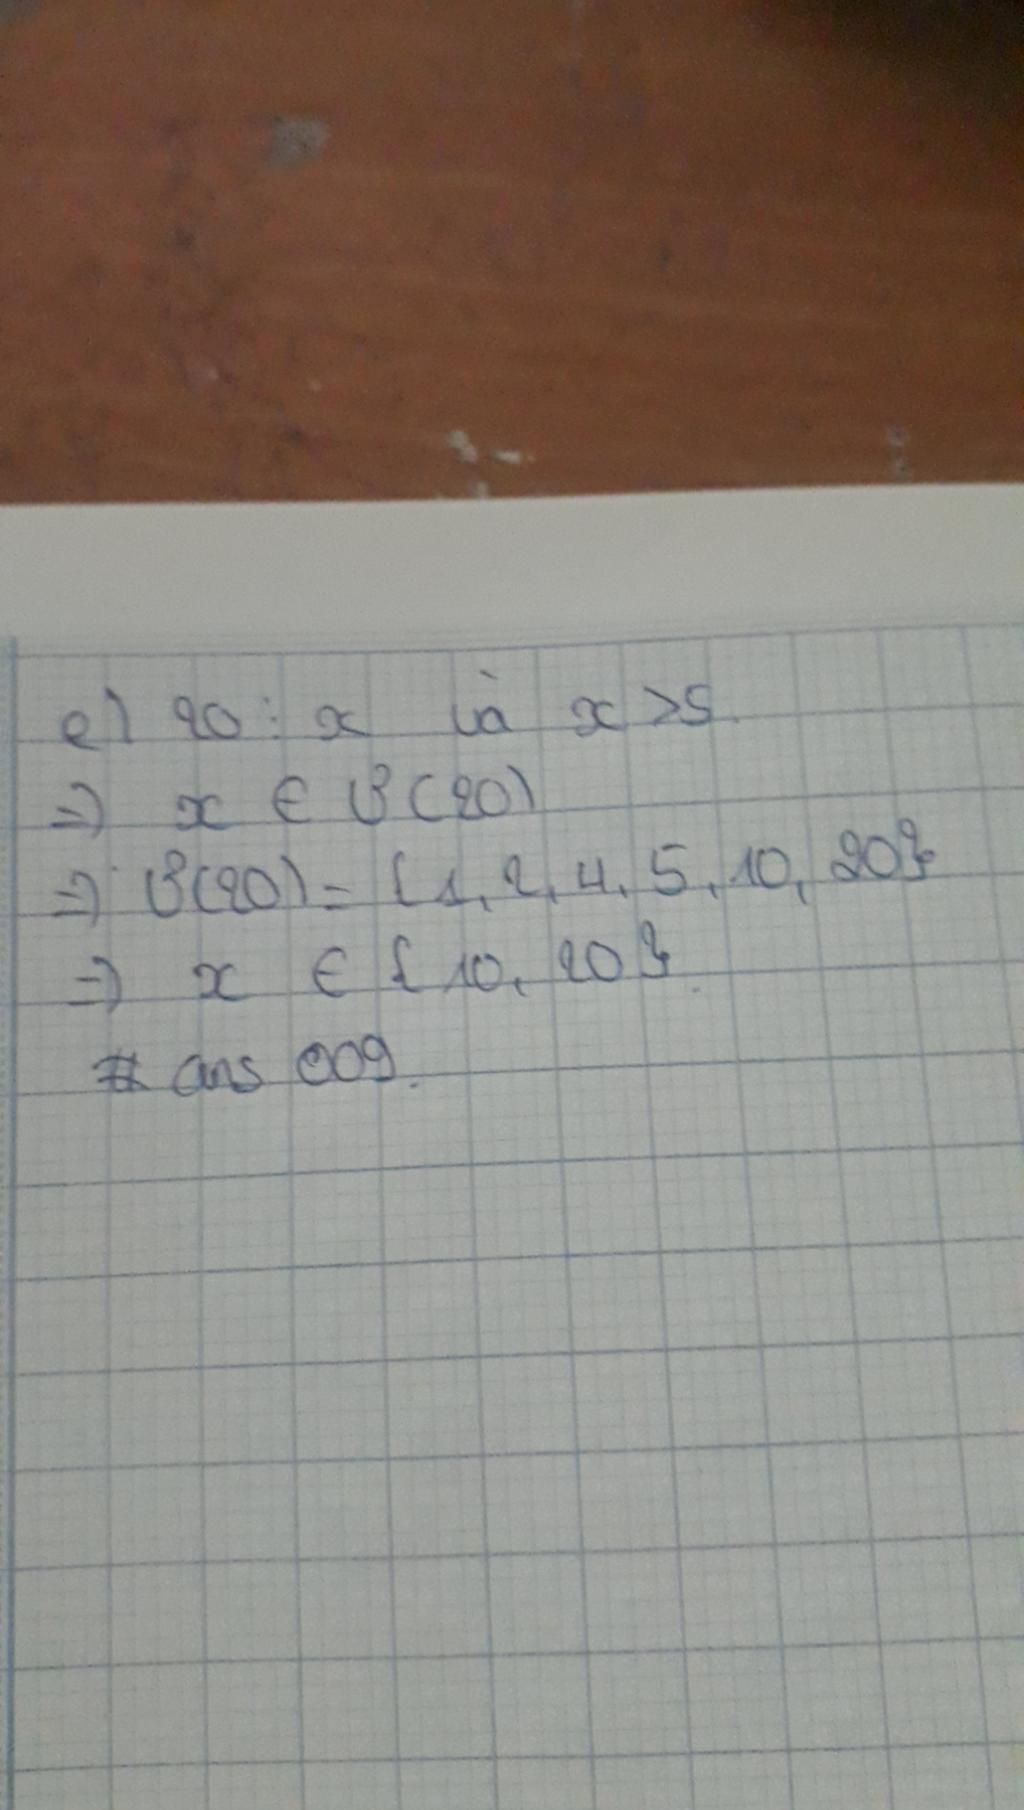 e) 20 ⋮ x và x > 5.
=> x ∈ B(20)
=> B(20) = {1, 2, 4, 5, 10, 20}
=> x ∈ {10, 20}.
# ans 009.